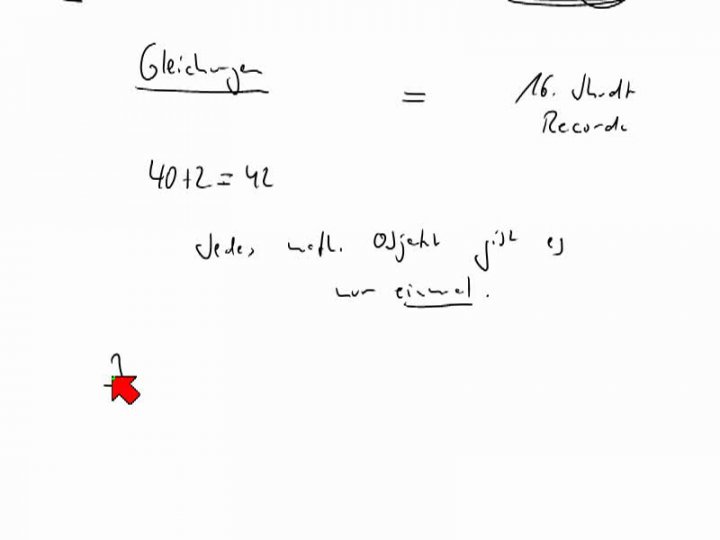 Gleichungen
= 16. Jhrdt
Recorde
40+2=42
Jedes math. Objekt gibt es
nur einmal.